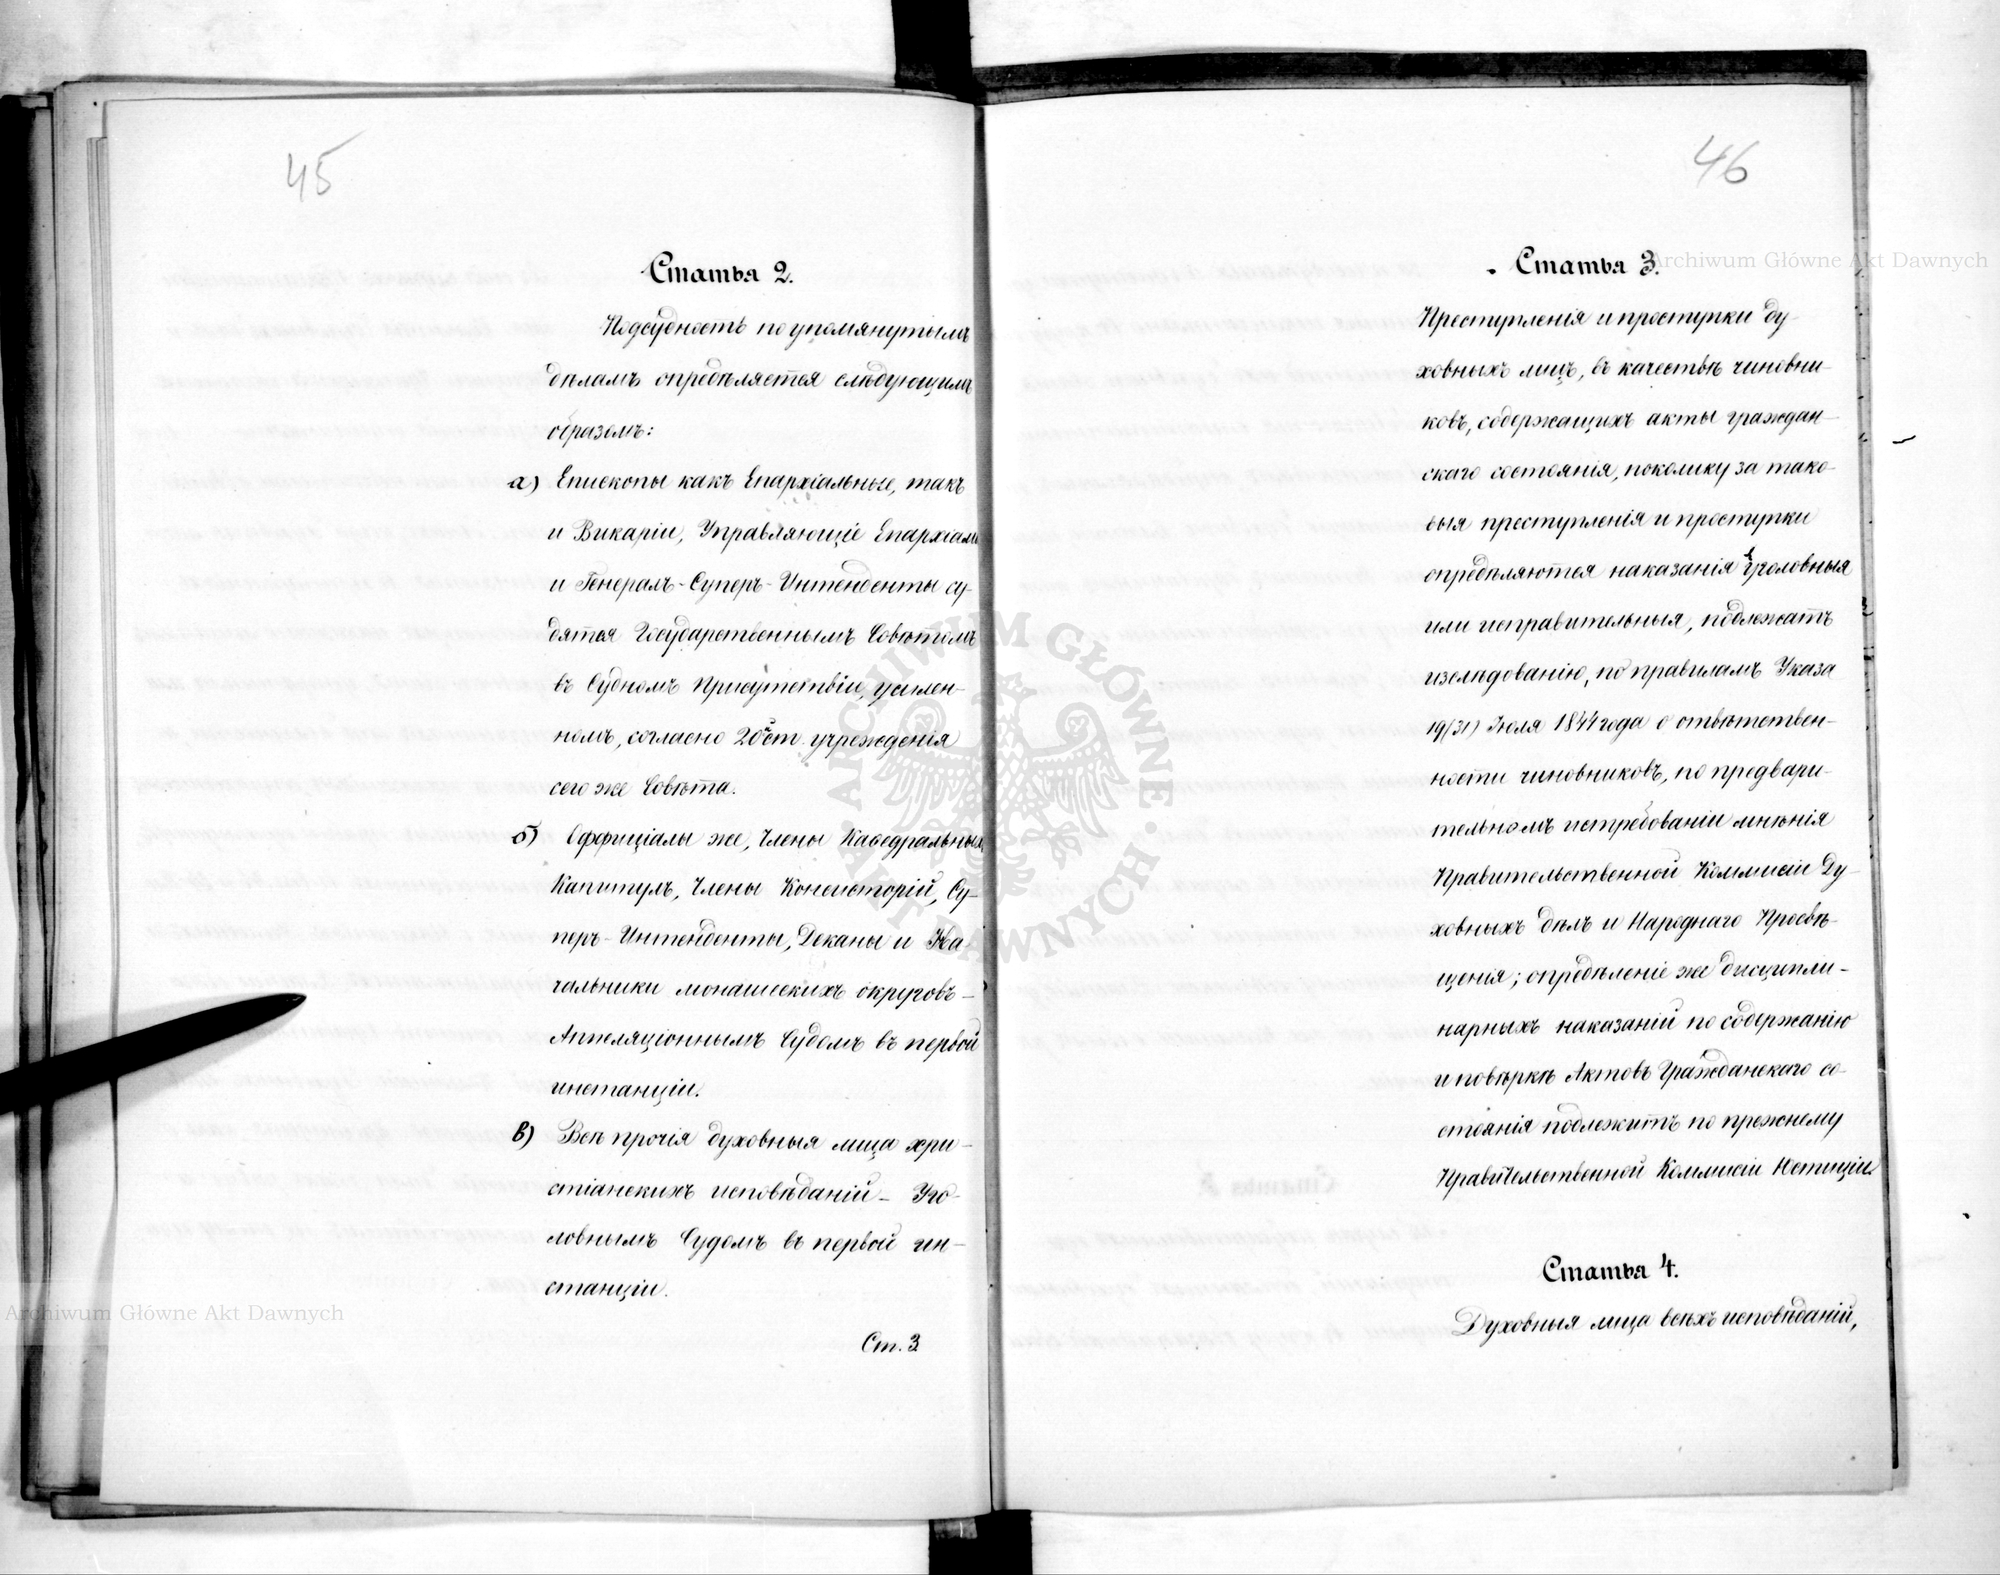 45
Статья 2.
Подсудность по упомянутымъ
дѣламъ опредѣляется слѣдующимъ
образомъ:
а) Епископы какъ Епархіальные, такъ
и Викаріи, Управляющіе Епархіями
и Генералъ-Суперъ-Интенденты су-
дятся Государственнымъ Совѣтомъ
въ Судномъ Присутствіи, усилен-
номъ, согласно 20й ст. учрежденія
сего же Совѣта.
б) Оффиціалы же, Члены Каѳедральныхъ
Капитулъ, Члены Консисторій, Су-
перъ-Интенденты, Деканы и На-
чальники монашескихъ округовъ -
Аппеляціоннымъ Судомъ въ первой
инстанціи.
в) Всѣ прочія духовныя лица хри-
стіанскихъ исповѣданій - Уго-
ловнымъ Судомъ въ первой ин-
станціи.
Ст. 3
46
Статья 3.
Преступленія и проступки ду-
ховныхъ лицъ, въ качествѣ чиновни-
ковъ, содержащихъ акты граждан-
скаго состоянія, поколику за тако-
выя преступленія и проступки
опредѣляются наказанія уголовныя
или исправительныя, подлежатъ
изслѣдованію, по правиламъ Указа
19/31) Іюля 1844 года о отвѣтствен-
ности чиновниковъ, по предвари-
тельномъ истребованіи мнѣнія
Правительственной Коммисіи Ду-
ховныхъ дѣлъ и Народнаго Просвѣ-
щенія; опредѣленіе же дисципли-
нарныхъ наказаній по содержанію
и повѣркѣ Актовъ Гражданскаго со-
стоянія подлежитъ по прежнему
Правительственной Коммисіи Юстиціи.
Статья 4.
Духовныя лица всѣхъ исповѣданій,
Archiwum Główne Akt Dawnych
Archiwum Główne Akt Dawnych
ARCHIWUM GŁÓWNE
AKT DAWNYCH